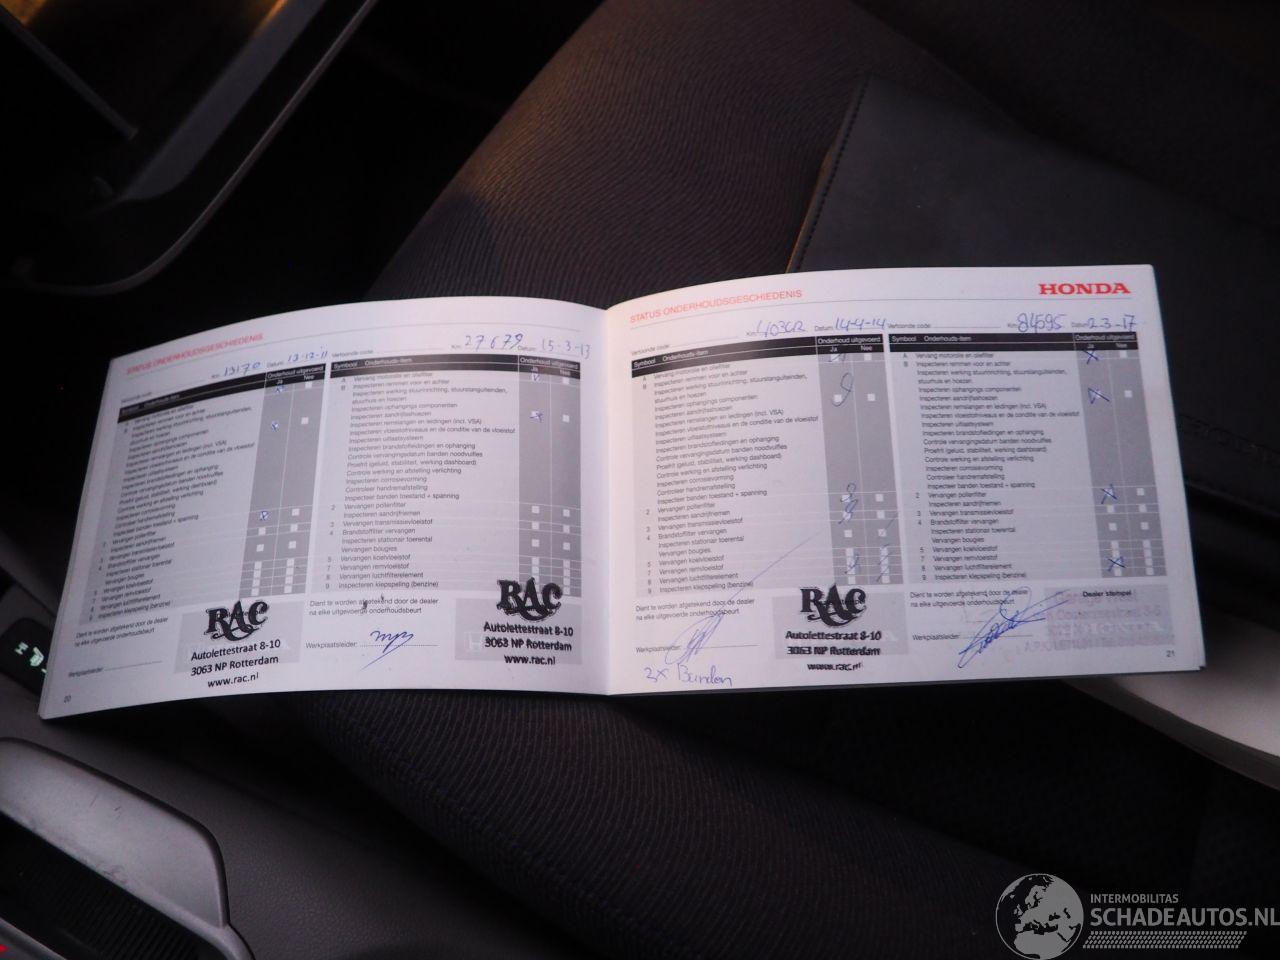 STATUS ONDERHOUDSGESCHIEDENIS
Km: 13170 Datum: 13-12-11
Symbool Onderhouds-item Onderhoud uitgevoerd
Ja Nee
A Vervang motorolie en oliefilter
B Inspecteren remmen voor en achter
Inspecteren werking stuurinrichting, stuurstanguiteinden,
stuurhuis en hoezen
Inspecteren ophangings componenten
Inspecteren aandrijfashoezen
Inspecteren remslangen en leidingen (incl. VSA)
Inspecteren vloeistofniveaus en de conditie van de vloeistof
Inspecteren uitlaatsysteem
Inspecteren brandstofleidingen en ophanging
Controle vervangingsdatum banden noodvulfles
Proefrit (geluid, stabiliteit, werking dashboard)
Controle werking en afstelling verlichting
Inspecteren corrosievorming
Controleer handremafstelling
Inspecteer banden toestand + spanning
2 Vervangen pollenfilter
Inspecteren aandrijfriemen
3 Vervangen transmissievloeistof
4 Brandstoffilter vervangen
Inspecteren stationair toerental
Vervangen bougies
5 Vervangen koelvloeistof
7 Vervangen remvloeistof
8 Vervangen luchtfilterelement
9 Inspecteren klepspeling (benzine)
Dient te worden afgetekend door de dealer
na elke uitgevoerde onderhoudsbeurt
Werkplaatsleider:
RAC
Autolettestraat 8-10
3063 NP Rotterdam
www.rac.nl
20
Vertoonde code: Km: 27679 Datum: 15-3-13
Symbool Onderhouds-item Onderhoud uitgevoerd
Ja Nee
A Vervang motorolie en oliefilter
B Inspecteren remmen voor en achter
Inspecteren werking stuurinrichting, stuurstanguiteinden,
stuurhuis en hoezen
Inspecteren ophangings componenten
Inspecteren aandrijfashoezen
Inspecteren remslangen en leidingen (incl. VSA)
Inspecteren vloeistofniveaus en de conditie van de vloeistof
Inspecteren uitlaatsysteem
Inspecteren brandstofleidingen en ophanging
Controle vervangingsdatum banden noodvulfles
Proefrit (geluid, stabiliteit, werking dashboard)
Controle werking en afstelling verlichting
Inspecteren corrosievorming
Controleer handremafstelling
Inspecteer banden toestand + spanning
2 Vervangen pollenfilter
Inspecteren aandrijfriemen
3 Vervangen transmissievloeistof
4 Brandstoffilter vervangen
Inspecteren stationair toerental
Vervangen bougies
5 Vervangen koelvloeistof
7 Vervangen remvloeistof
8 Vervangen luchtfilterelement
9 Inspecteren klepspeling (benzine)
Dient te worden afgetekend door de dealer
na elke uitgevoerde onderhoudsbeurt
Werkplaatsleider:
RAC
Autolettestraat 8-10
3063 NP Rotterdam
www.rac.nl
STATUS ONDERHOUDSGESCHIEDENIS
HONDA
Km: Datum: 14-4-14
Symbool Onderhouds-item Onderhoud uitgevoerd
Ja Nee
A Vervang motorolie en oliefilter
B Inspecteren remmen voor en achter
Inspecteren werking stuurinrichting, stuurstanguiteinden,
stuurhuis en hoezen
Inspecteren ophangings componenten
Inspecteren aandrijfashoezen
Inspecteren remslangen en leidingen (incl. VSA)
Inspecteren vloeistofniveaus en de conditie van de vloeistof
Inspecteren uitlaatsysteem
Inspecteren brandstofleidingen en ophanging
Controle vervangingsdatum banden noodvulfles
Proefrit (geluid, stabiliteit, werking dashboard)
Controle werking en afstelling verlichting
Inspecteren corrosievorming
Controleer handremafstelling
Inspecteer banden toestand + spanning
2 Vervangen pollenfilter
Inspecteren aandrijfriemen
3 Vervangen transmissievloeistof
4 Brandstoffilter vervangen
Inspecteren stationair toerental
Vervangen bougies
5 Vervangen koelvloeistof
7 Vervangen remvloeistof
8 Vervangen luchtfilterelement
9 Inspecteren klepspeling (benzine)
Dient te worden afgetekend door de dealer
na elke uitgevoerde onderhoudsbeurt
Werkplaatsleider:
2x Banden
RAC
Autolettestraat 8-10
3063 NP Rotterdam
www.rac.nl
Vertoonde code: Km: 84595 Datum: 2-3-17
Symbool Onderhouds-item Onderhoud uitgevoerd
Ja Nee
A Vervang motorolie en oliefilter
B Inspecteren remmen voor en achter
Inspecteren werking stuurinrichting, stuurstanguiteinden,
stuurhuis en hoezen
Inspecteren ophangings componenten
Inspecteren aandrijfashoezen
Inspecteren remslangen en leidingen (incl. VSA)
Inspecteren vloeistofniveaus en de conditie van de vloeistof
Inspecteren uitlaatsysteem
Inspecteren brandstofleidingen en ophanging
Controle vervangingsdatum banden noodvulfles
Proefrit (geluid, stabiliteit, werking dashboard)
Controle werking en afstelling verlichting
Inspecteren corrosievorming
Controleer handremafstelling
Inspecteer banden toestand + spanning
2 Vervangen pollenfilter
Inspecteren aandrijfriemen
3 Vervangen transmissievloeistof
4 Brandstoffilter vervangen
Inspecteren stationair toerental
Vervangen bougies
5 Vervangen koelvloeistof
7 Vervangen remvloeistof
8 Vervangen luchtfilterelement
9 Inspecteren klepspeling (benzine)
Dient te worden afgetekend door de dealer
na elke uitgevoerde onderhoudsbeurt
Werkplaatsleider:
Dealer stempel
21
INTERMOBILITAS
SCHADEAUTOS.NL